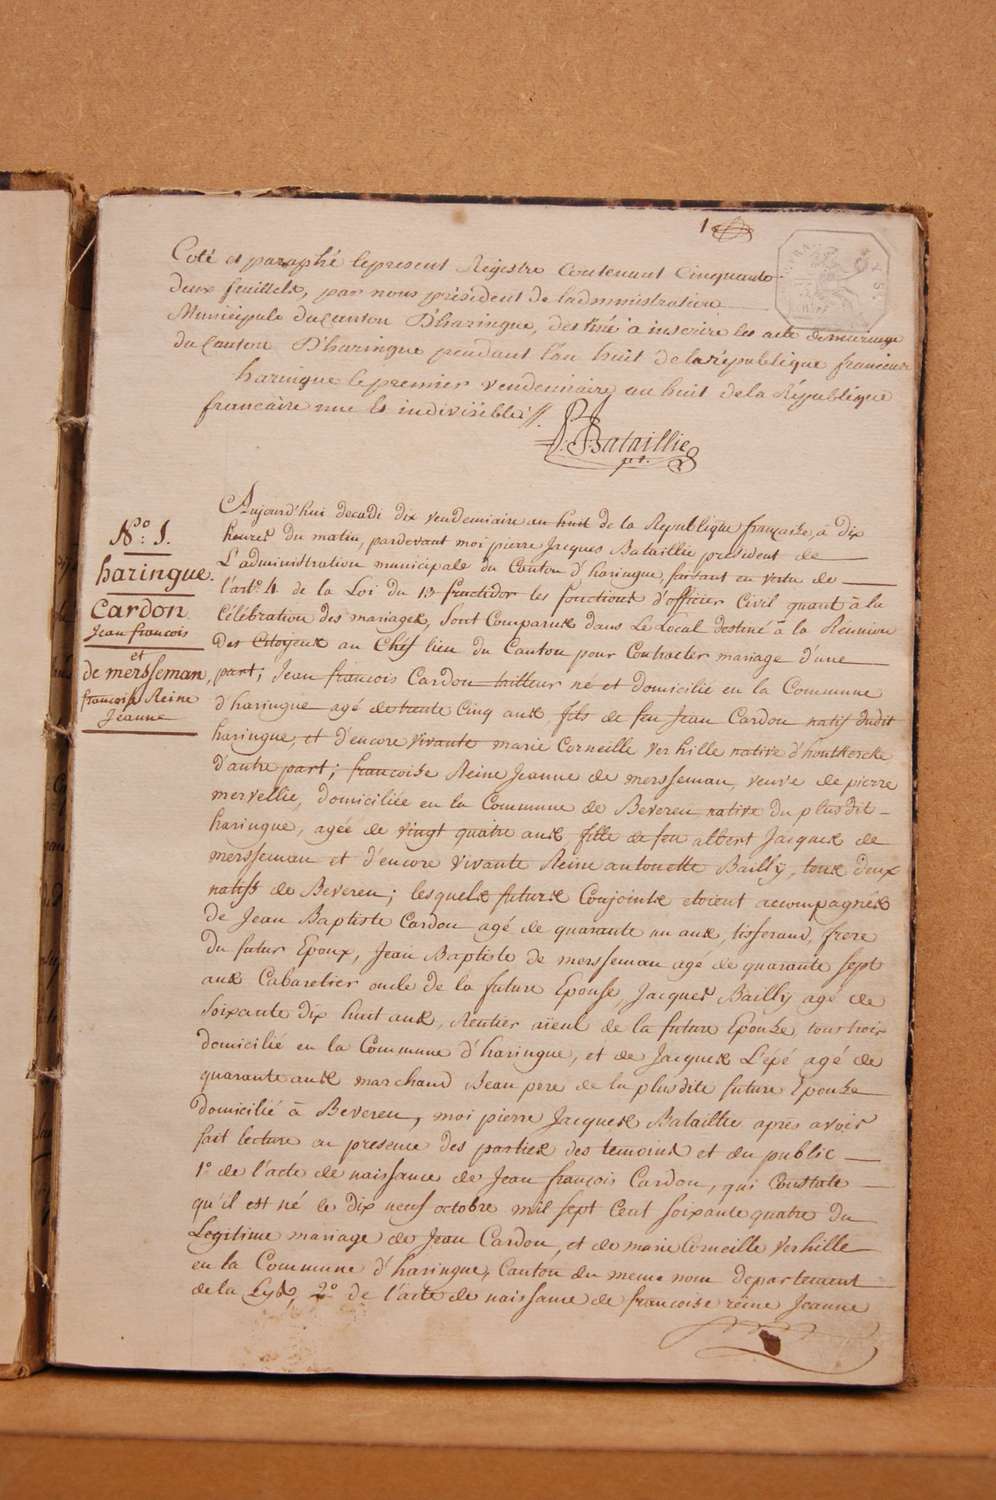 1
Coté et paraphé le present Régistre Contenant Cinquante
deux feuillets, par nous président de l'administration
Municipale du Canton D'haringue, destiné à inscrire les acte de mariage
du Canton D'haringue pendant l'an huit de la république francaise
haringue le premier vendemiaire an huit de la République
francaise une et indivisible //.
P. J. Bataillie
pt.
N.º 1.
haringue.
Cardon
Jean françois
et
de mersseman,
françoise Reine
Jeanne
Aujourd'hui decadi dix vendemiaire an huit de la République française, à dix
heures du matin, pardevant moi pierre Jacques Bataillie président de
L'administration municipale du Canton d'haringue, faisant en vertu de
l'art.e 4 de la Loi du 13 fructidor les fonctions d'officier Civil quant à la
Célébration des mariages, sont Comparus dans Le local destiné à la Réunion
Des Citoyens au Chef lieu du Canton pour Contracter mariage d'une
part; Jean françois Cardon tailleur né et domicilié en la Commune
d'haringue agé de trente Cinq ans, fils de feu Jean Cardon natif dudit
haringue, et d'encore vivante marie Corneille verhille native d'houtkercke
d'autre part; francoise Reine Jeanne de mersseman, veuve de pierre
mervellie, domiciliée en la Commune de Beveren native du plus dit
haringue, agée de vingt quatre ans fille de feu albert Jacques de
mersseman et d'encore vivante Reine antonette Bailly, tous deux
natifs de Beveren; lesquels futurs Conjoints etoient accompagnés
de Jean Baptiste Cardon agé de quarante un ans, tisserand, frere
du futur Epoux, Jean Baptiste de mersseman agé de quarante sept
ans Cabaretier oncle de la future Epouse, Jacques Bailly agé de
soixante dix huit ans, Rentier aïeul de la future Epouse tous trois
domicilié en la Commune d'haringue, et de Jacques L'epé agé de
quarante ans marchand Beau pere de la plus dite future Epouse
domicilié à Beveren, moi pierre Jacques Bataillie après avoir
fait lecture en presence des parties des temoins et du public
1º de l'acte de naissance de Jean françois Cardon, qui Constate
qu'il est né le dix neuf octobre mil sept Cent soixante quatre du
Legitime mariage de Jean Cardon, et de marie Corneille verhille
en la Commune d'haringue, Canton du meme nom departement
de la Lys, 2º de l'acte de naissance de francoise reine Jeanne